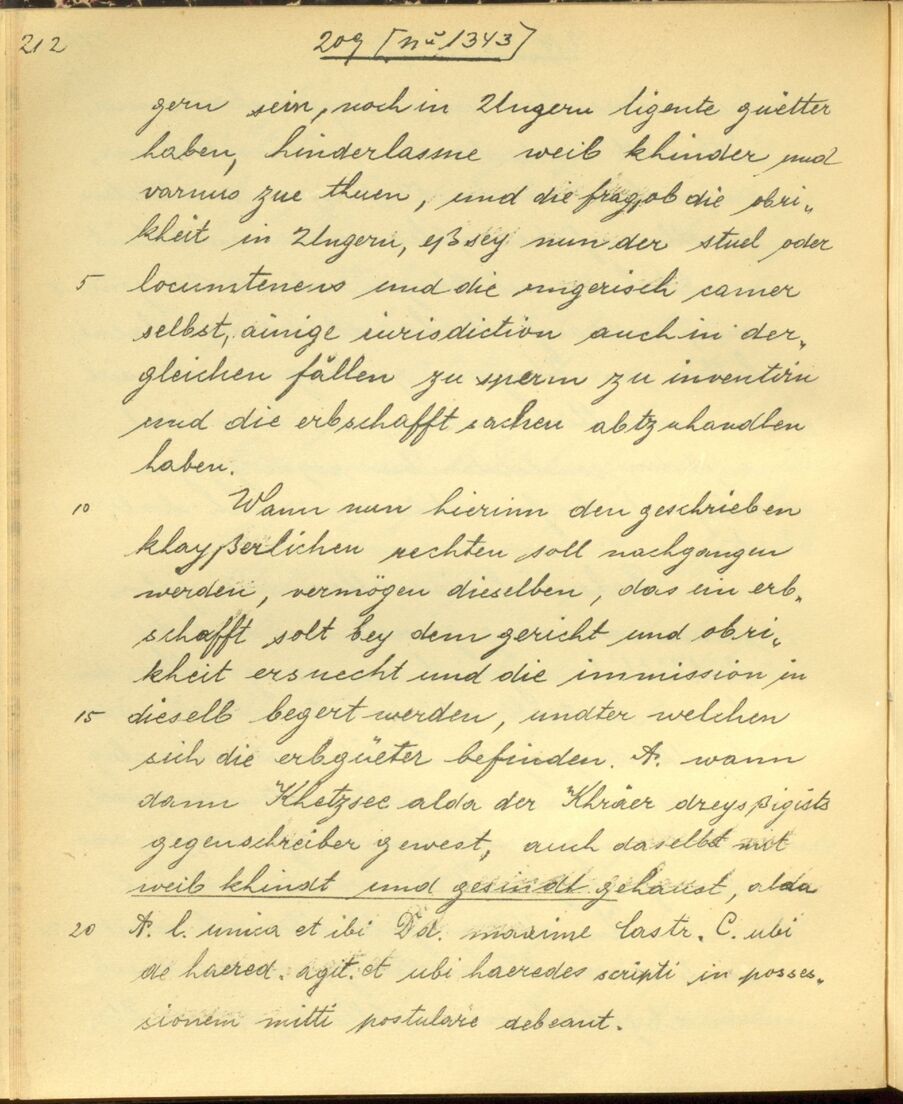 212
209 [nu 1343]
gern sein, noch in Ungern ligente guetter
haben, hinderlassne weib khinder und
varnus zue thuen, und die frag, ob die obri-
kheit in Ungern, eß sey nun der stuel oder
5 locumtenens und die ungerisch camer
selbst, ainige iurisdiction auch in der-
gleichen fällen zu sperrn zu inventirn
und die erbschafft sachen abtzuhandlen
haben.
10 Wann nun hierinn den geschrieben
khayßerlichen rechten soll nachgangen
werden, vermögen dieselben, das ein erb-
schafft solt bey dem gericht und obri-
kheit ersuecht und die immission in
15 dieselb begert werden, undter welchen
sich die erbgüeter befinden. A. wann
dann Khetzsee alda der Khräer dreysßigists
gegenschreiber gewest, auch daselbst mit
weib khindt und gesindt gehaust, alda
20 A. l. unica et ibi Dd. maxime Castr. C. ubi
de haered. agit. et ubi haeredes scripti in posses-
sionem mitti postulare debeant.